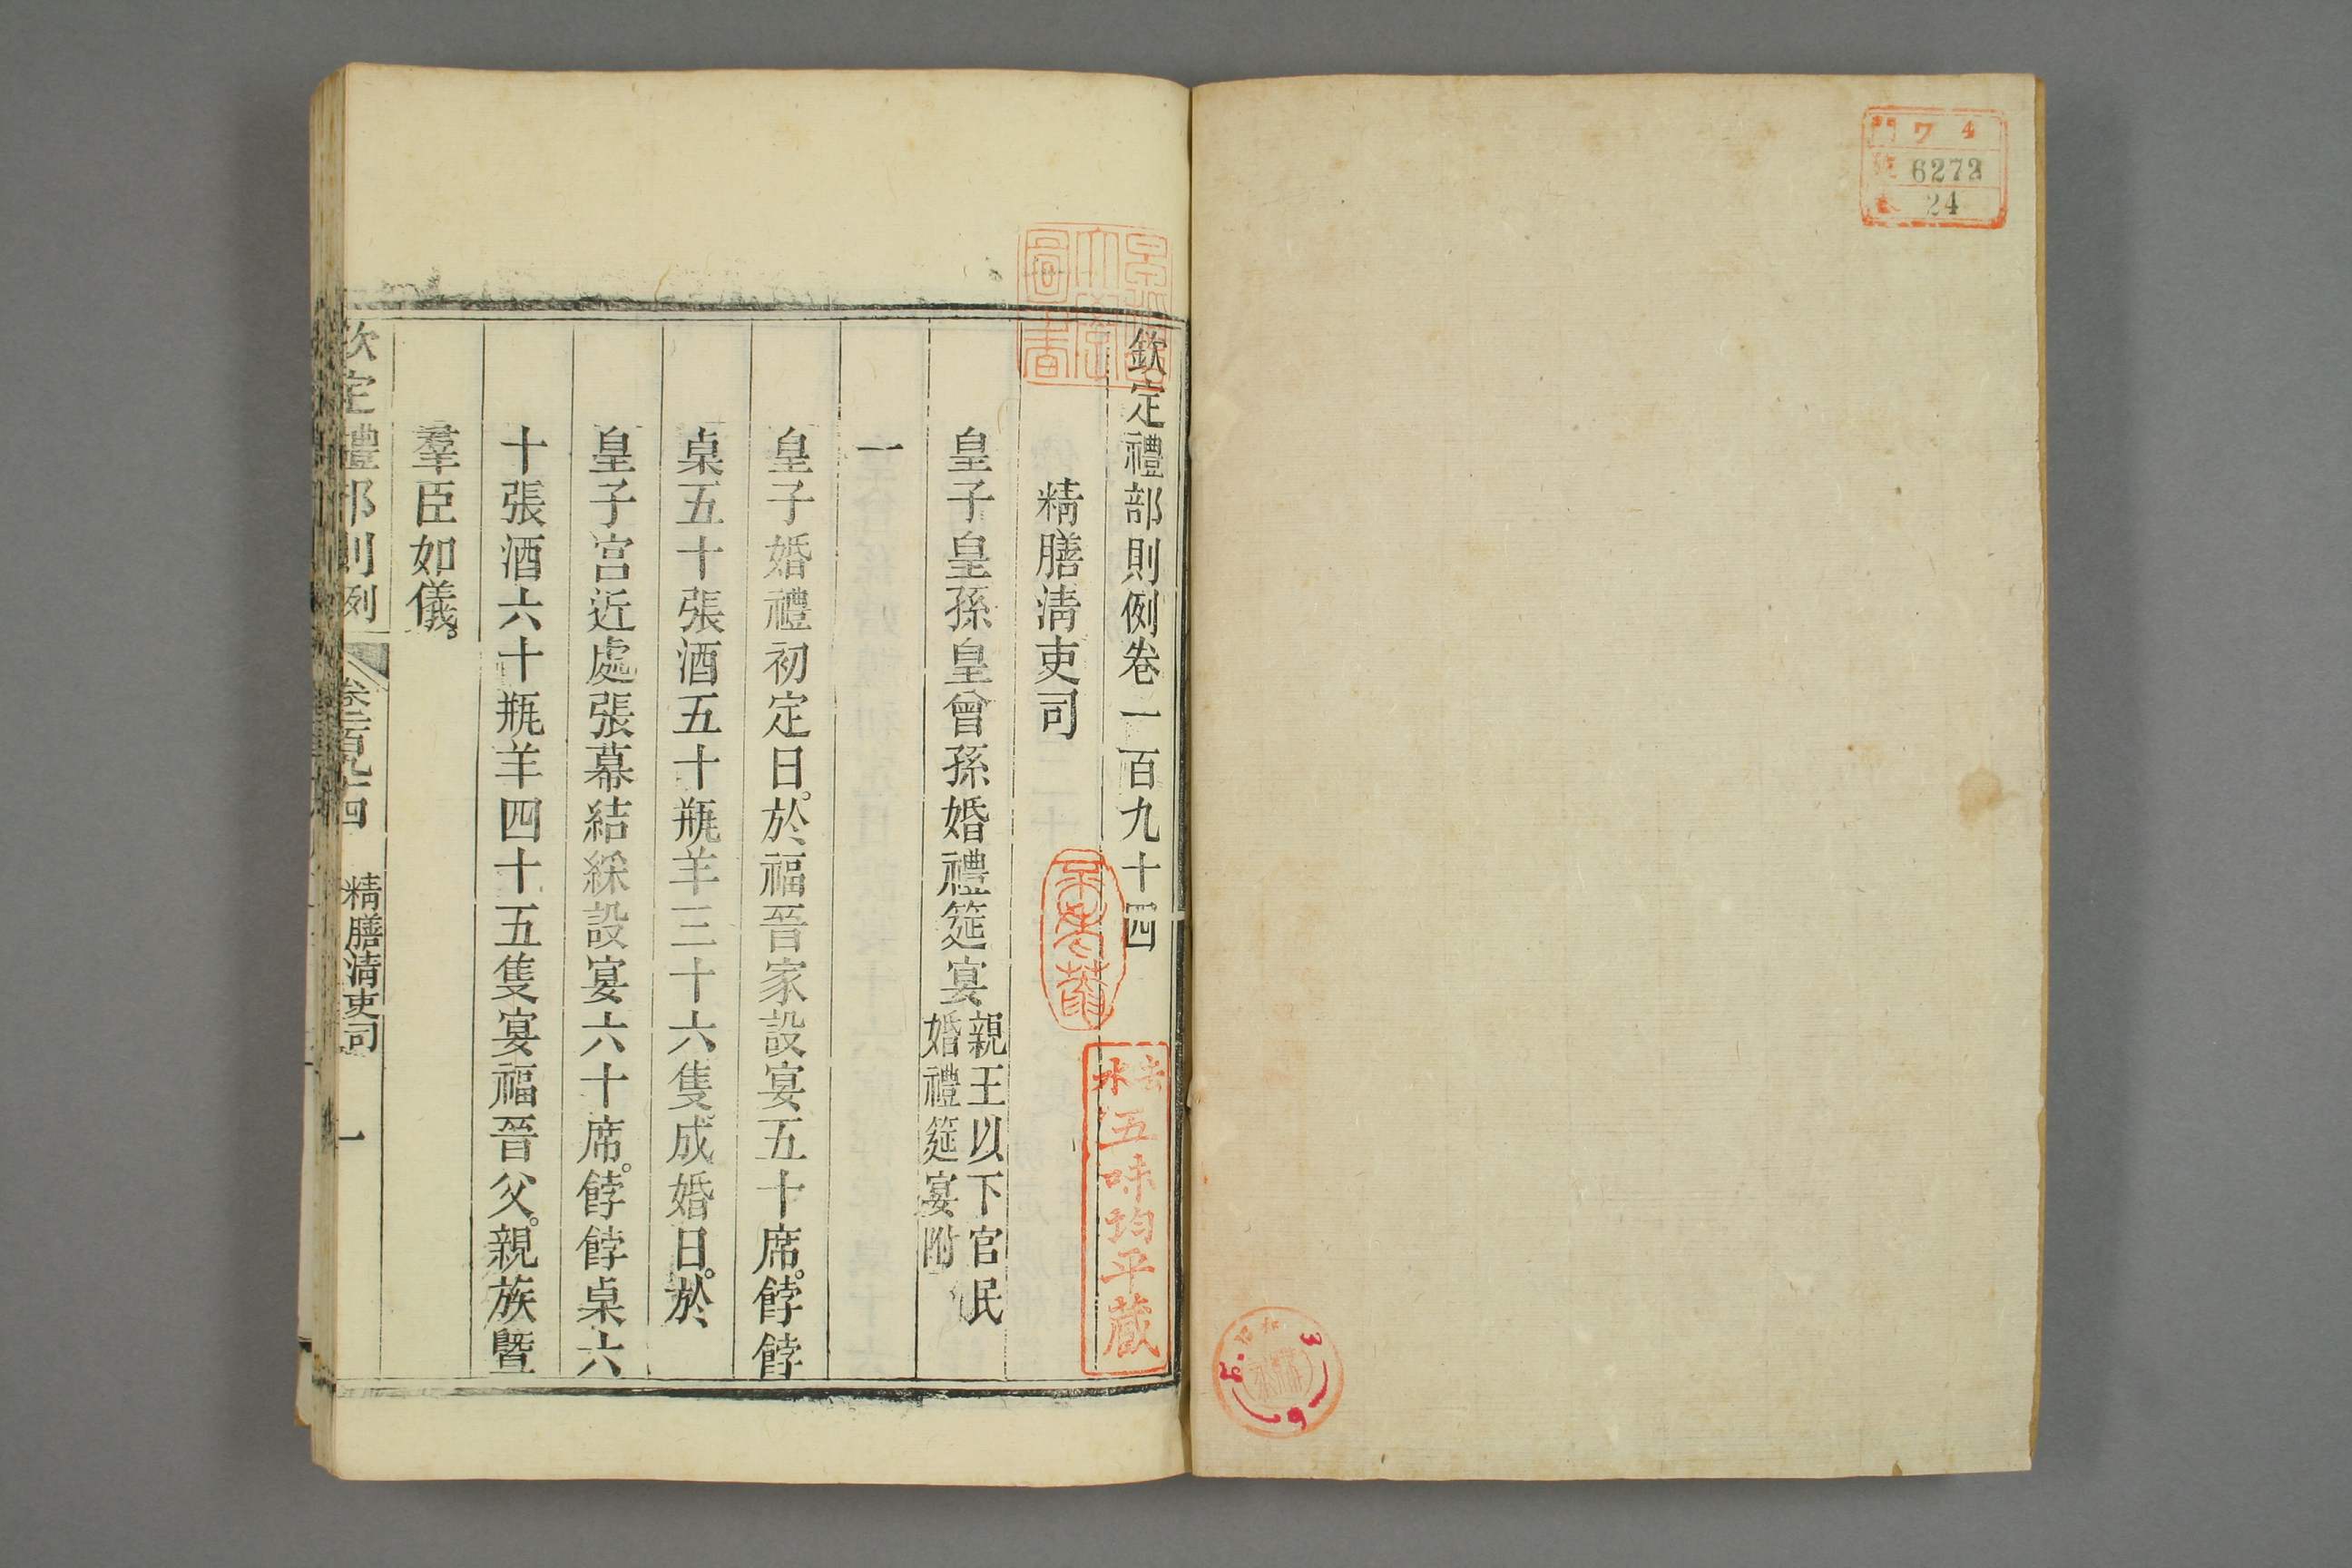 門 ワ 4
號 6272
卷 24
欽定禮部則例卷一百九十四
精膳淸吏司
皇子皇孫皇曾孫婚禮筵宴 親王以下官民
婚禮筵宴附
一
皇子婚禮初定日。於福晉家設宴五十席。餑餑
桌五十張酒五十瓶羊三十六隻成婚日。於
皇子宮近處張幕結綵設宴六十席。餑餑桌六
十張酒六十瓶羊四十五隻宴福晉父。親族暨
羣臣如儀。
欽定禮部則例 卷一百九十四 精膳淸吏司 一
五味均平藏
圖書